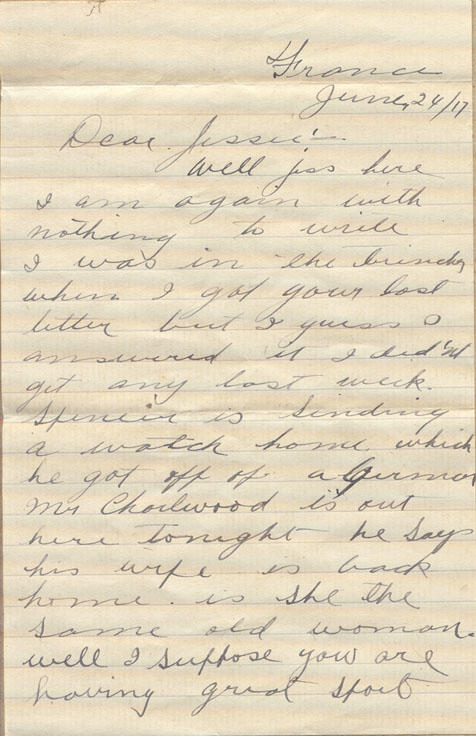 France
June, 24/17
Dear Jessie:-
Well Jess here
I am again with
nothing to write
I was in the trenches
when I got your last
letter but I guess I
answered it I did'nt
get any last week.
Spencer is sending
a watch home which
he got off of a German
Mr Charlwood is out
here tonight he says
his wife is back
home. is she the
same old woman.
well I suppose you are
having great sport